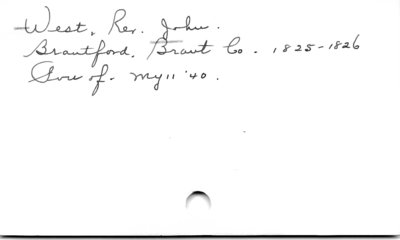 West, Rev. John.
Brantford, Brant Co. 1825-1826
of. My 11 '40.